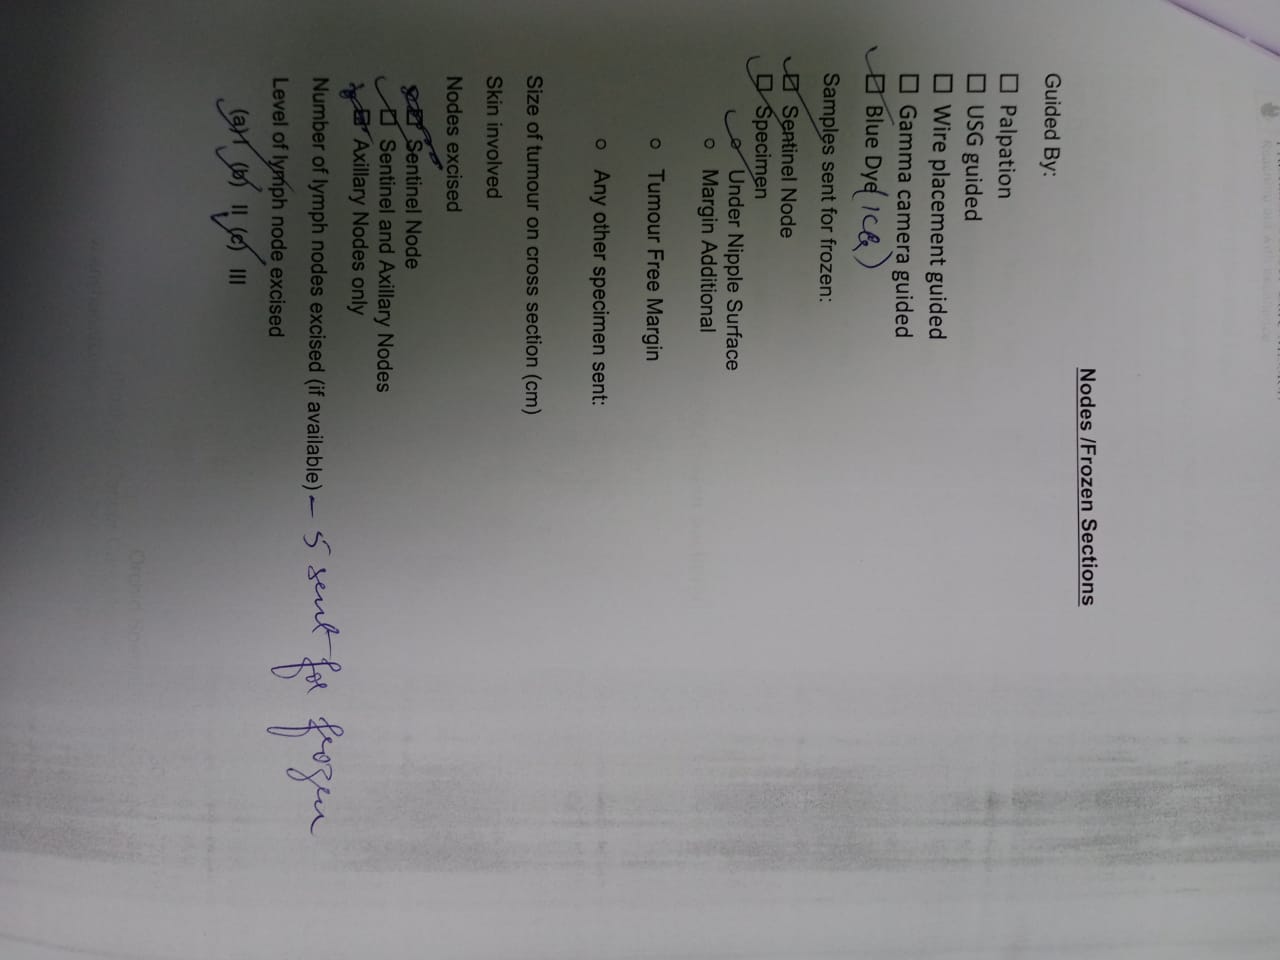 Nodes /Frozen Sections
Guided By:
☐ Palpation
☐ USG guided
☐ Wire placement guided
☐ Gamma camera guided
☑ Blue Dye (ICG)
Samples sent for frozen:
☑ Sentinel Node
☑ Specimen
○ Under Nipple Surface
○ Margin Additional
○ Tumour Free Margin
○ Any other specimen sent:
Size of tumour on cross section (cm)
Skin involved
Nodes excised
Sentinel Node
☑ Sentinel and Axillary Nodes
Axillary Nodes only
Number of lymph nodes excised (if available) – 5 sent for frozen
Level of lymph node excised
(a) I (b) II (c) III